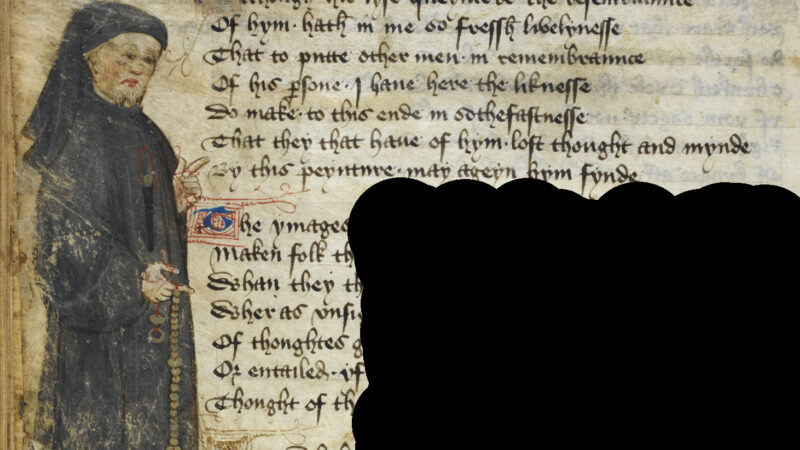 his lyfe be the resemblaunce
Of hym hath in me so fressh lyvelynesse
That to putte other men in remembraunce
Of his persone I have here his lyknesse
Do make to this ende in sothefastnesse
That they that have of hym lost thought and mynde
By this peynture may ageyn hym fynde
The ymages
Maken folk th
Whan they th
Wher as unsi
Of thoughtes g
Or entailed yf
Thought of th